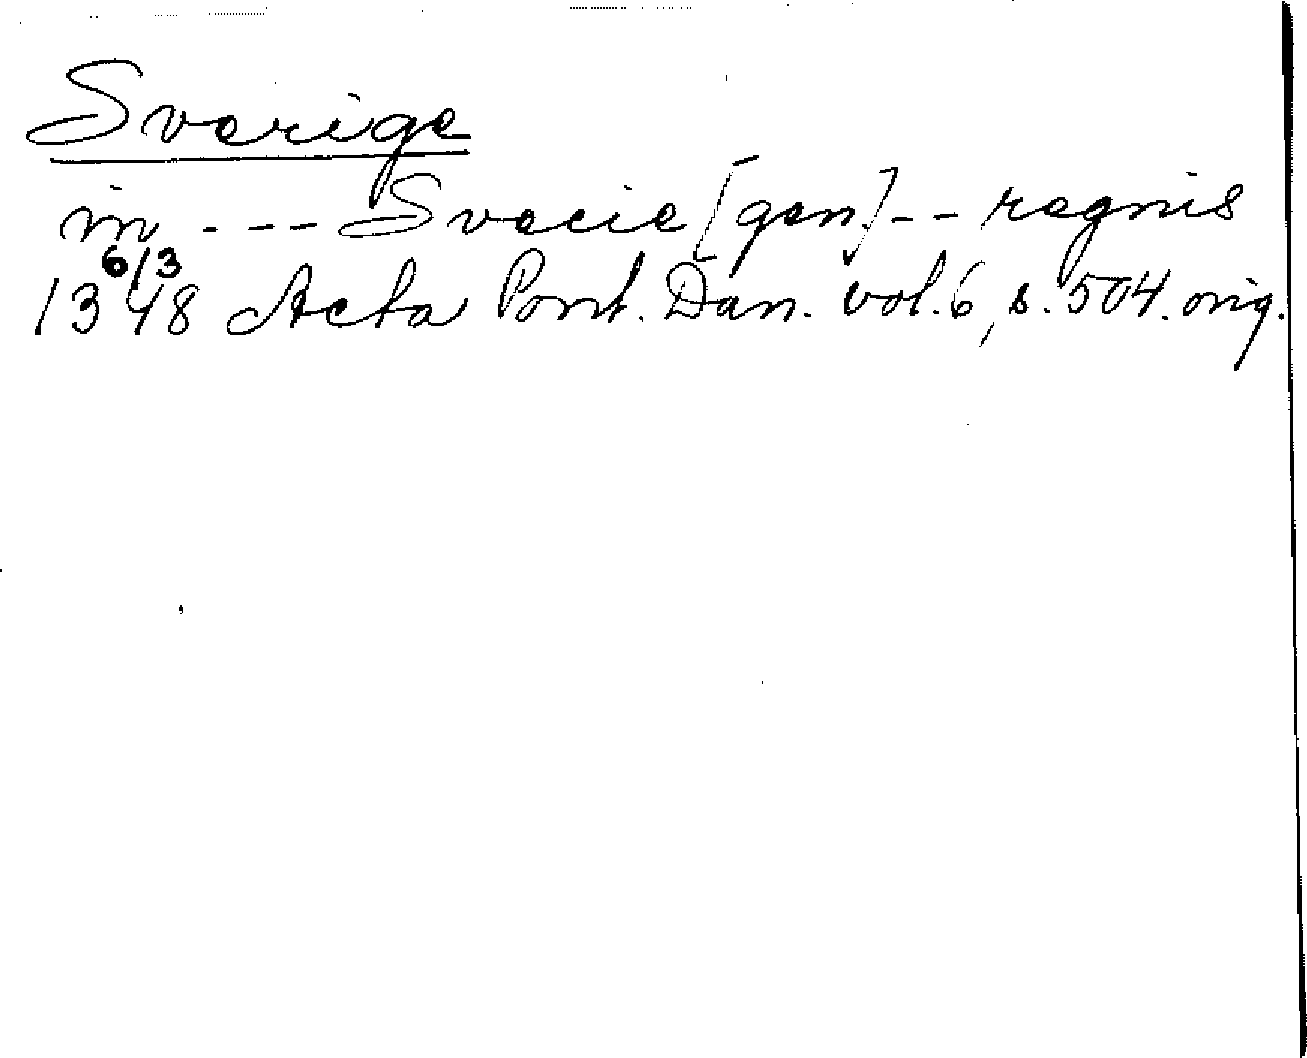 Sverige
in - - - Svecie [gen.] - - regnis
6/3
1348 Acta Pont. Dan. vol. 6, s. 504. orig.